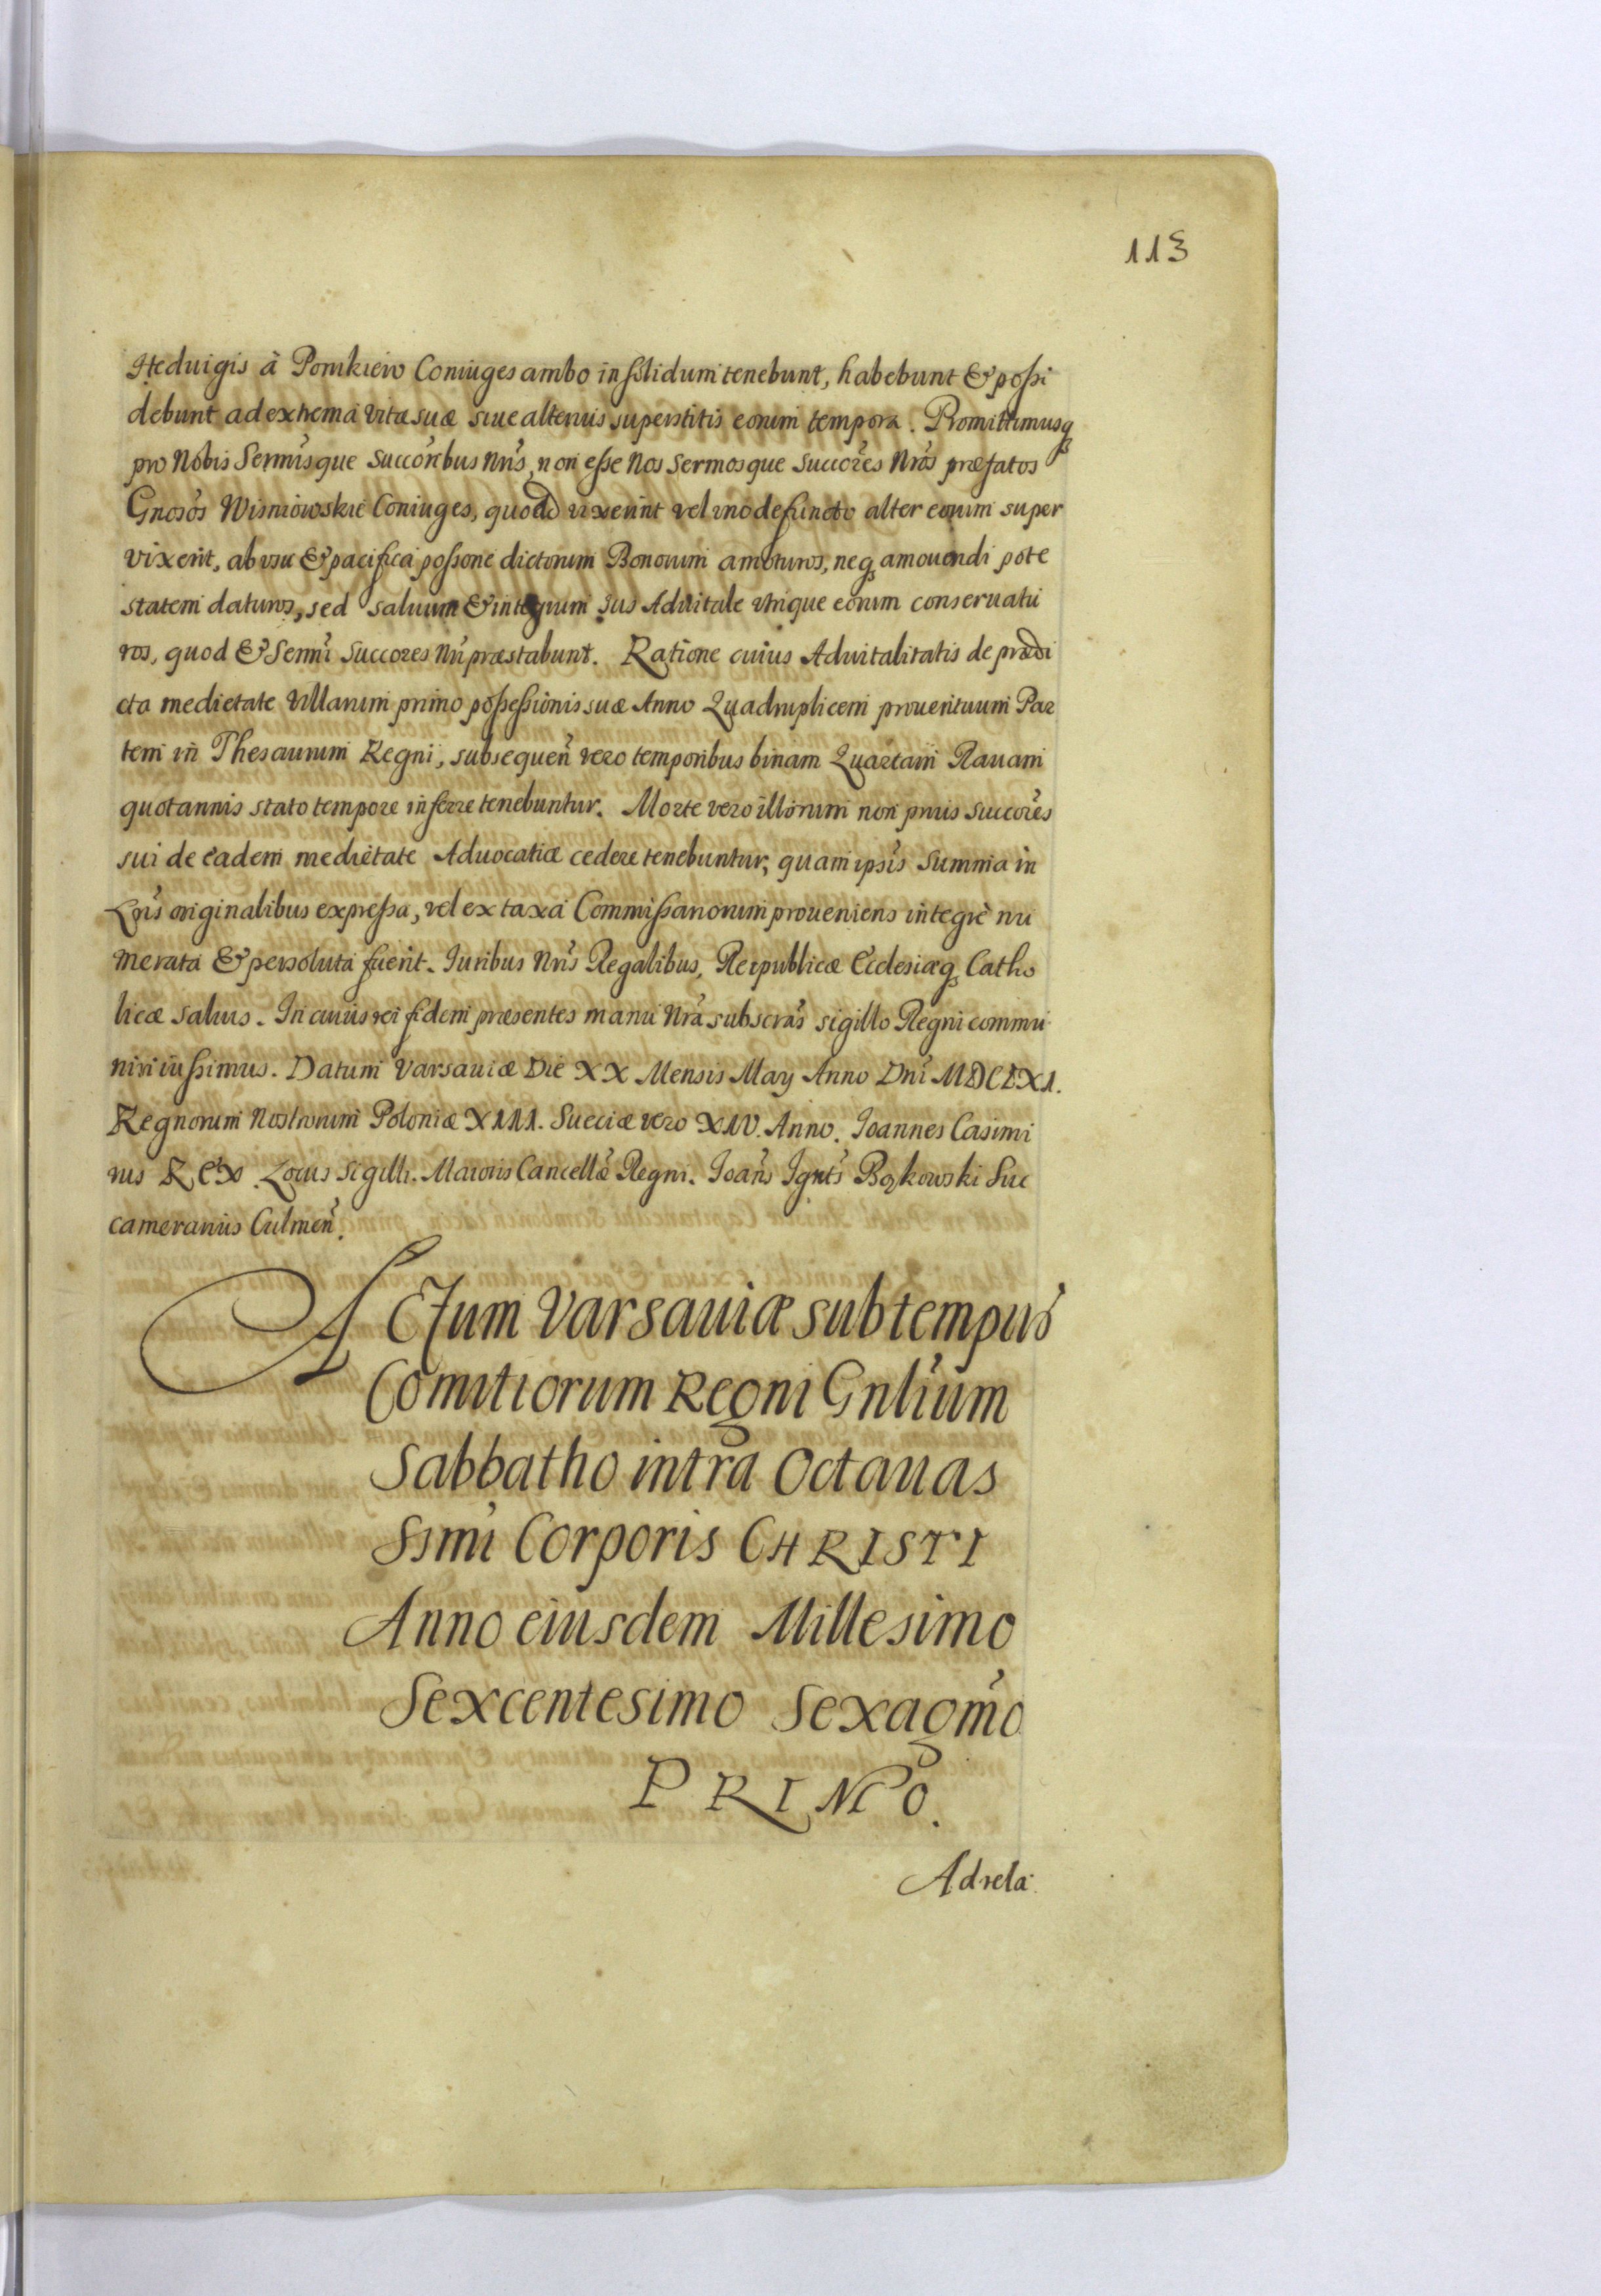 113
Heduigis à Pomkiew Coniuges ambo in solidum tenebunt, habebunt & possi
debunt ad extrema vitæ suæ siue alterius superstitis eorum tempora. Promittimusq
pro Nobis Sermisque Succoribus Nris, non esse Nos Sermosque Succores Nros præfatos
Gnosos Wisniowskie Coniuges, quoad vixerint vel uno defuncto alter eorum super
vixerit, ab vsu & pacifica possone dictorum Bonorum amoturos, neq amouendi pote
statem daturos, sed saluum & integrum Jus Aduitale vtrique eorum conseruatu
ros, quod & Sermi Succores Nri præstabunt. Ratione cuius Aduitalitatis de prædi
cta medietate Villarum primo possessionis suæ Anno Quadruplicem prouentuum Par
tem in Thesaurum Regni, subsequen vero temporibus binam Quartam Rauam
quotannis stato tempore inferre tenebuntur. Morte vero illorum non prius Succores
sui de eadem medietate Aduocatiæ cedere tenebuntur, quam ipsis Summa in
Lris originalibus expressa, vel ex taxa Commissariorum proueniens integrè nu
merata & persoluta fuerit. Iuribus Nris Regalibus, Reipublicæ Ecclesiæq Catho
licæ saluis. In cuius rei fidem præsentes manu Nra subscras sigillo Regni commu
niri iussimus. Datum Varsauiæ Die XX Mensis May Anno Dni MDCLXI.
Regnorum Nostrorum Poloniæ XIII. Sueciæ vero XIV. Anno. Ioannes Casimi
rus Rex. Locus Sigilli. Maioris Cancellæ Regni. Joans Ignts Bąkowski Suc
camerarius Culmen.
ACTum Varsauiæ sub tempus
Comitiorum Regni Gnlium
Sabbatho intra Octauas
Ssimi Corporis CHRISTI
Anno eiusdem Millesimo
Sexcentesimo Sexagmo
PRIMO.
Ad rela